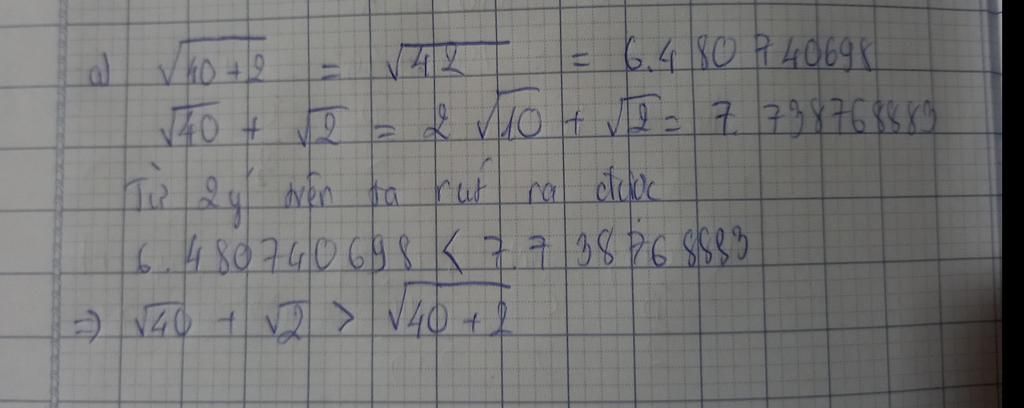 a) √40+2 = √42 = 6.480740698
√40 + √2 = 2√10 + √2 = 7.738768883
Từ 2 ý trên ta rút ra được
6.480740698 < 7.738768883
⇒ √40 + √2 > √40+2